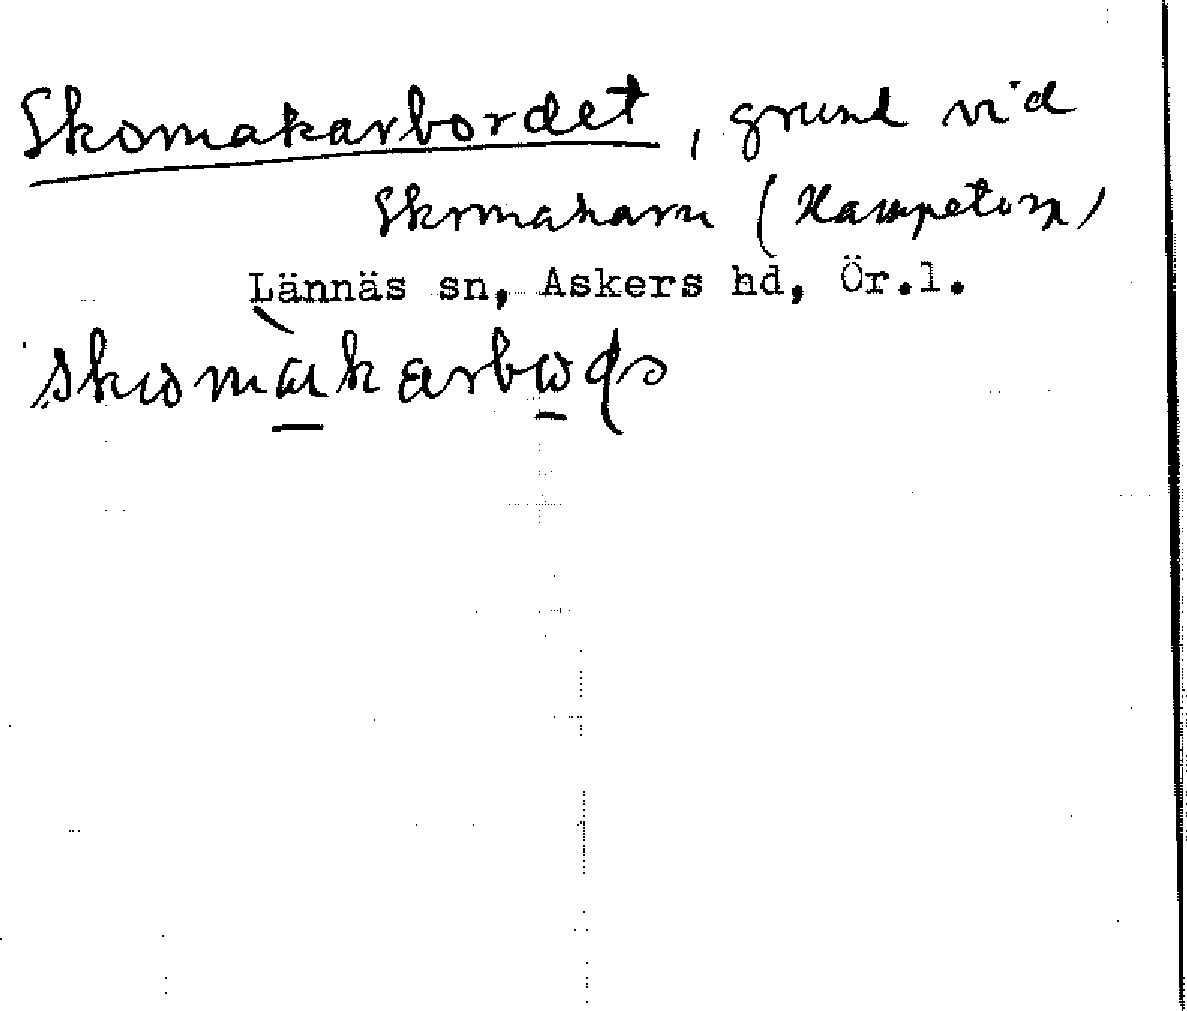 Skomakarbordet, grund vid
Skomakarn (Hampetorp)
Lännäs sn, Askers hd, Ör.l.